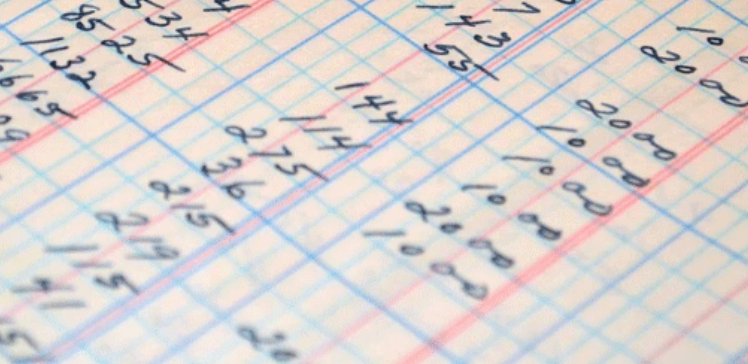 534
8525
1132
6665
143
55
144
114
275
36
215
219
115
41
20 00
20 00
10 00
10 00
10 00
20 00
10 00
20